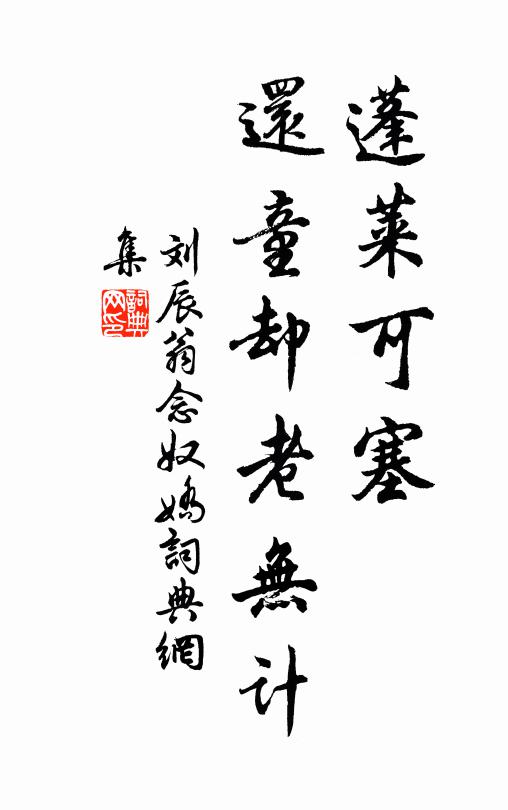 蓬莱可塞
還童却老無計
刘辰翁念奴嬌詞典網
集
詞典網印